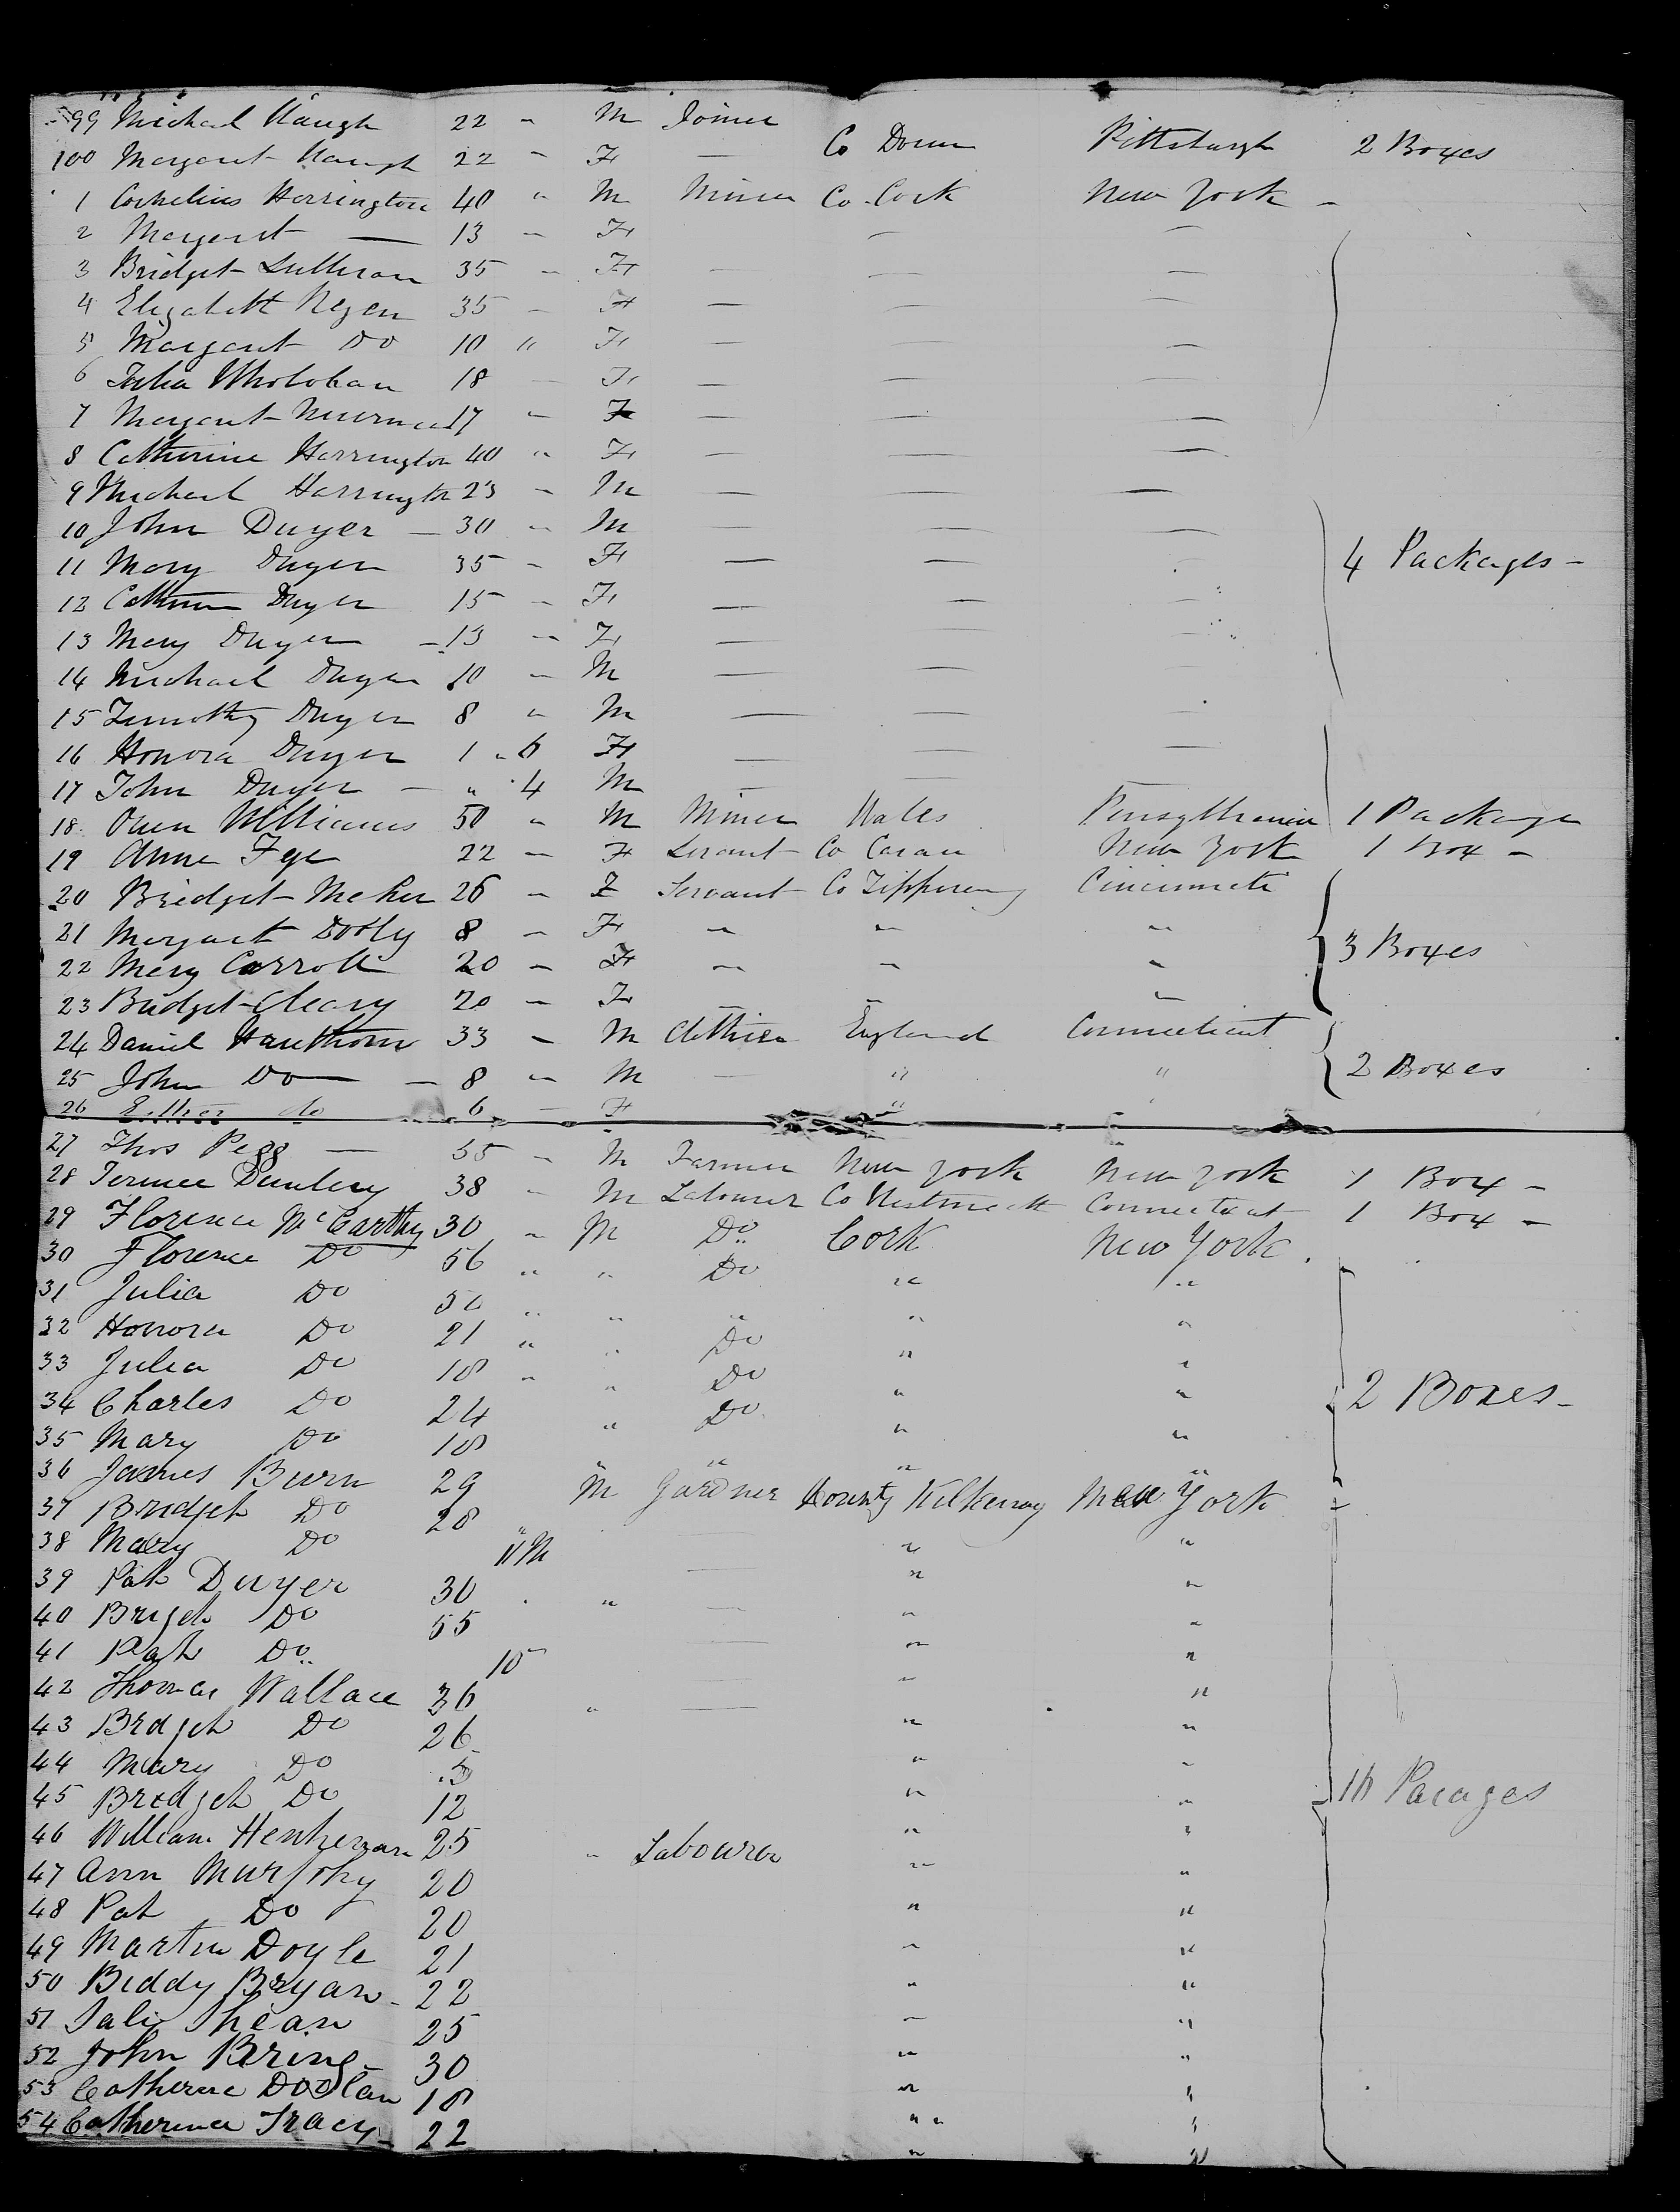 99 Michael Waugh 22 " M Joiner
100 Margaret Waugh 22 " F — Co Down Pittsburgh 2 Boxes
1 Cornelius Harrington 40 " M Miner Co. Cork New York -
2 Margaret — 13 " F — —
3 Bridget Sullivan 35 " F — — —
4 Elizabeth Regen 35 " F — — —
5 Margaret Do 10 " F — — —
6 Julia Wholohan 18 — F — — —
7 Margaret 17 " F — — —
8 Catherine Harrington 40 " F — — —
9 Michael Harrington 23 " M — — —
10 John Dwyer — 30 " M — — —
11 Mary Dwyer 35 " F — — 4 Packages -
12 Catherine Dwyer 15 " F — — —
13 Mary Dwyer — 13 " F — — —
14 Michael Dwyer 10 " M — — —
15 Timothy Dwyer 8 " M — — —
16 Honora Dwyer 1 " 6 F — — —
17 John Dwyer — " 4 M — — —
18 Owen Williams 50 " M Miner Wales Pensylvania 1 Package
19 Anne Fye 22 " F Servant Co Cavan New York 1 Box -
20 Bridget 26 " F Servant Co Tipperary Cincinnati
21 Margaret Dooly 8 " F " " " 3 Boxes
22 Mary Carroll 20 " F " " "
23 Bridget Cleary 20 " F — — "
24 Daniel Hawthorn 33 " M Clothier England Connecticut
25 John Do — 8 " M — " " 2 Boxes
26 Esther do 6 — F " "
27 Thos Pegg — 35 " M Farmer New York New York 1 Box -
28 Terence Dunlevy 38 " M Labourer Co Westmeath Connecticut 1 Box -
29 Florence McCarthy 30 " M Do Cork New York .
30 Florence Do 56 " " Do " "
31 Julia Do 50 " " " " "
32 Honora Do 21 " " Do " "
33 Julia Do 18 " " Do " "
34 Charles Do 24 " Do " " 2 Boxes -
35 Mary Do 18 " " " "
36 James Burn 29 M Gardner County Kilkenny New York
37 Bridget Do 28 "
38 Mary Do 11 M " "
39 Pat Dwyer 30 . " — " "
40 Brigeh Do 55 — " "
41 Pat Do 10 — " "
42 Thomas Wallace 36 " — " "
43 Brdgeh Do 26 " "
44 Mary Do 5 " "
45 Bredgeh Do 12 " " Pacages
46 William 25 " Labourer " "
47 Ann Murphy 20 " "
48 Pat Do 20 " "
49 Martin Doyle 21 " "
50 Biddy Bryan - 22 " "
51 Shean 25 " "
52 John Bring 30 " "
53 Catherine Doolan 18 " "
54 Catherine Tracy 22 " "